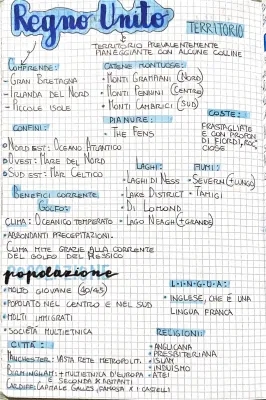 Regno Unito
TERRITORIO
TERRITORIO PREVALENTEMENTE
PIANEGGIANTE CON ALCUNE COLLINE
COMPRENDE:
- GRAN BRETAGNA
- IRLANDA DEL NORD
- PICCOLE ISOLE
CATENE MONTUOSE:
- MONTI GRAMPIANI (NORD)
- MONTI PENNINI (CENTRO)
- MONTI CAMBRICI (SUD)
PIANURE:
- THE FENS
COSTE:
FRASTAGLIATE
E CON PROFON
DI FIORDI, ROC
CIOSE
CONFINI:
NORD EST: OCEANO ATLANTICO
OVEST: MARE DEL NORD
SUD EST: MAR CELTICO
LAGHI:
LAGHI DI NESS
LAKE DISTRICT
DI LOMOND
LAGO NEAGH (+GRANDE)
FIUMI:
SEVERN (+LUNGO)
TAMIGI
BENEFICI CORRENTE
GOLFO:
CLIMA: OCEANICO TEMPERATO
ABBONDANTI PRECIPITAZIONI.
CLIMA MITE GRAZIE ALLA CORRENTE
DEL GOLFO DEL MESSICO
popolazione
MOLTO GIOVANE (40/45)
POPOLATO NEL CENTRO E NEL SUD
MOLTI IMMIGRATI
SOCIETÀ MULTIETNICA
LINGUA:
INGLESE, CHE È UNA
LINGUA FRANCA
RELIGIONI:
ANGLICANA
PRESBITERIANA
ISLAM
INDUISMO
ATEI
CITTÀ:
MANCHESTER: VASTA RETE METROPOLIT.
BIRMINGHAM: + MULTIETNICA D'EUROPA
E SECONDA X ABITANTI
CARDIFF: CAPITALE GALLES, FAMOSA X I CASTELLI